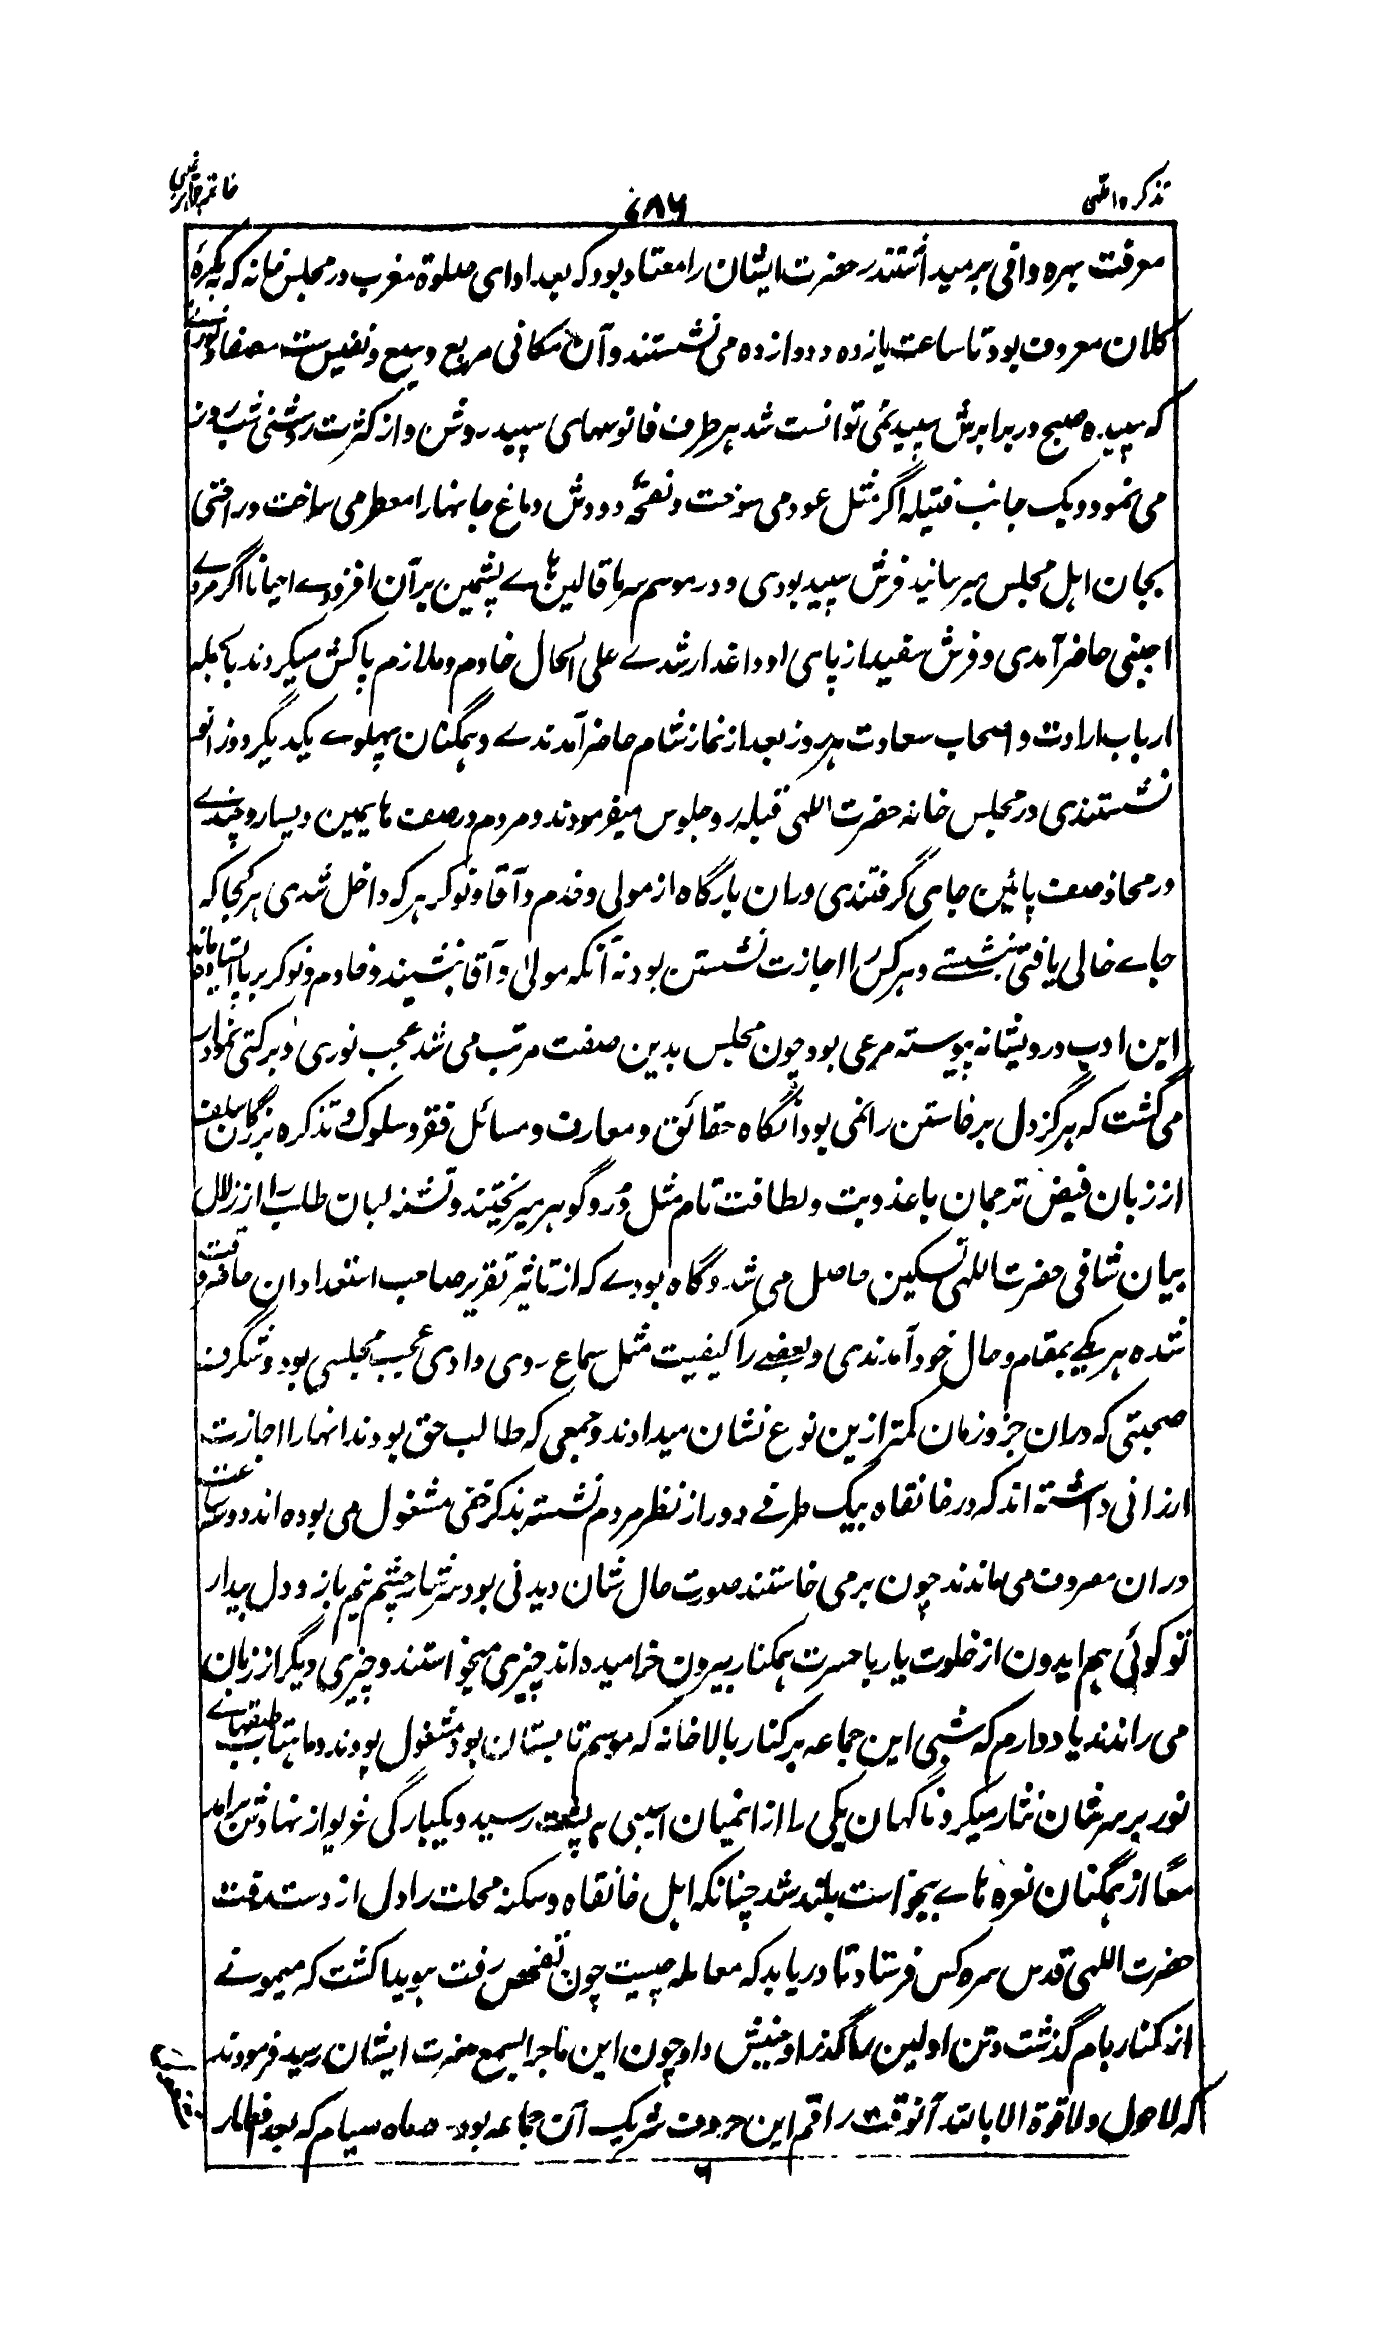 تذکره واقی
۶۸۷
خاتمه
معرفت بهره وافی برمیداشتند حضرت ایشان را معتاد بود که بعد ادای صلوة مغرب در مجلس خانه که بکمرهٔ
کلان معروف بود تا ساعت یازده و دوازده می نشستند و آن مکانی مربع وسیع و نفیس ست مصفا و نورانی
که سپیده صبح در برابرش سپید نمی توانست شد هر طرف فانوسهای سپید روشن و از کثرت روشنی شب روز
می نمود و یک جانب فتیله اگر مثل عود می سوخت و نفحهٔ دودش دماغ جانها را معطر می ساخت و راحتی
بجان اهل مجلس میرسانید فرش سپید بودی و در موسم سرما قالین هاے پشمین بر آن افزودے احیانا اگر مردے
اجنبی حاضر آمدی و فرش سفید از پای او داغدار شدے علی الحال خادم و ملازم پاکش میکردند بالجمله
ارباب ارادت و اصحاب سعادت هر روز بعد از نماز شام حاضر آمدندے و همگنان پهلوے یکدیگر دوزانو
نشستندی در مجلس خانه حضرت اللهی قبله رو جلوس میفرمودند و مردم در صف ها یمین و یسار و چندے
در محاذ صف پائین جای گرفتندی دران بارگاه از مولی و خدم و آقا و نوکر هر که داخل شدی هر کجا که
جاے خالی یافتی بنشستے و هر کس را اجازت نشستن بود نه آنکه مولیٰ و آقا بنشیند و خادم و نوکر بر پا استاده ماند
این ادب درویشانه پیوسته مرعی بود چون مجلس بدین صفت مرتب می شد عجب نوری و برکتی نمودار
می گشت که هرگز دل برخاستن را نمی بود آنگاه حقائق و معارف و مسائل فقر و سلوک و تذکره بزرگان سلف
از زبان فیض ترجمان با عذوبت و لطافت تام مثل دُر و گوهر میریختند و تشنه لبان طلب را از زلال
بیان شافی حضرت اللهی تسکین حاصل می شد و گاه بودے که از تاثیر تقریر صاحب استعدادان حاضر وقت
شده هر یکے بمقام و حال خود آمدندی و بعضے را کیفیت مثل سماع روی دادی عجب مجلسی بود و شگرف
صحبتی که دران جزو زمان کمتر ازین نوع نشان میدادند و جمعی که طالب حق بودند انها را اجازت
ارزانی داشته اند که در خانقاه بیک طرفے دور از نظر مردم نشسته بذکر خفی مشغول می بوده اند دو ساعت
دران مصروف می ماندند چون بر می خاستند صورت حال شان دیدنی بود سرشار چشم نیم باز و دل بیدار
تو گوئی هم ایدون از خلوت یار با حسرت همکنار بیرون خرامیده اند چیزی میخواستند و چیزی دیگر از زبان
می راندند یاد دارم که شبی این جماعه بر کنار بالاخانه که موسم تابستان بود مشغول بودند و ماهتاب طبقهاے
نور بر سر شان نثار میکرد ناگهان یکی را از انمیان آسیبی به پشت رسید و یکبارگی غریو از نهادش برآمد
معًا از همگنان نعره هاے بیخواست بلند شد چنانکه اهل خانقاه و سکنه محلت را دل از دست رفت
حضرت اللهی قدس سره کس فرستاد تا دریابد که معامله چیست چون تفحص رفت هویدا گشت که میمونے
از کنار بام گذشت و تن اولین را گذر او جنبش داد چون این ماجرا بسمع حضرت ایشان رسید فرمودند
که لا حول و لا قوة الا بالله آنوقت راقم این حروف شریک آن جماعه بود ۔ صاه سیام که بعد افطار